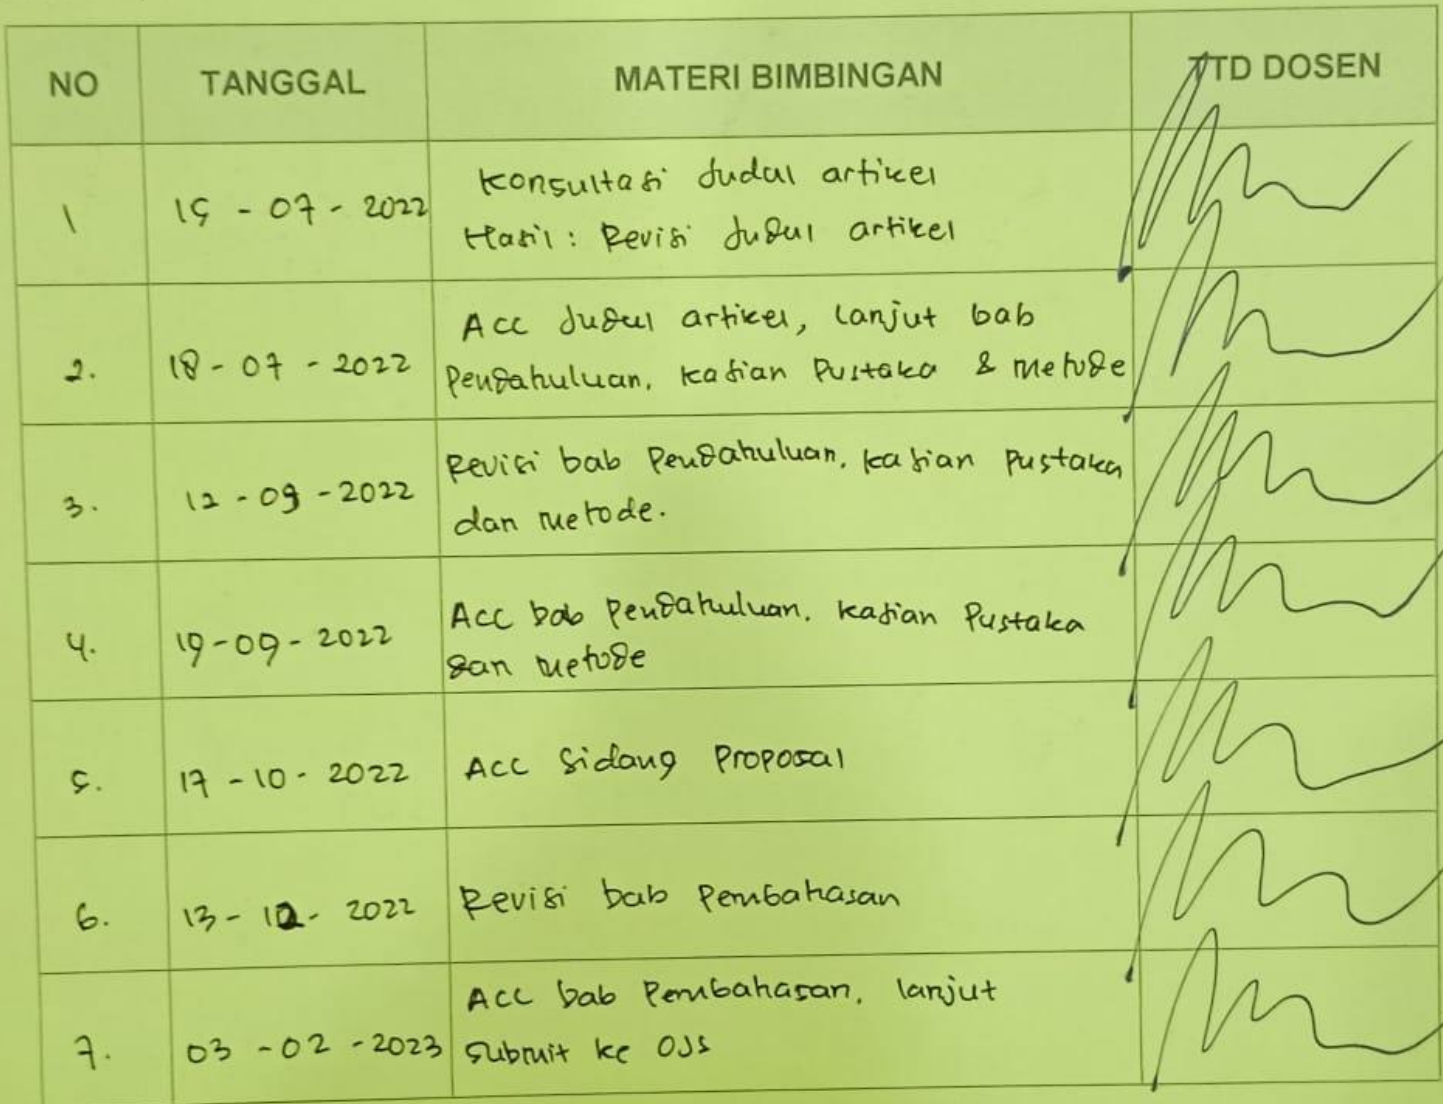 NO TANGGAL MATERI BIMBINGAN TTD DOSEN
1 15 - 07 - 2022 Konsultasi Judul artikel
Hasil : Revisi Judul artikel
2. 18 - 07 - 2022 Acc Judul artikel, lanjut bab
Pendahuluan, kajian Pustaka & metode
3. 12 - 09 - 2022 Revisi bab Pendahuluan, kajian Pustaka
dan metode.
4. 19 - 09 - 2022 Acc bab Pendahuluan, kajian Pustaka
dan metode
5. 17 - 10 - 2022 Acc Sidang Proposal
6. 13 - 12 - 2022 Revisi bab Pembahasan
7. 03 - 02 - 2023 Acc bab Pembahasan, lanjut
submit ke OJS